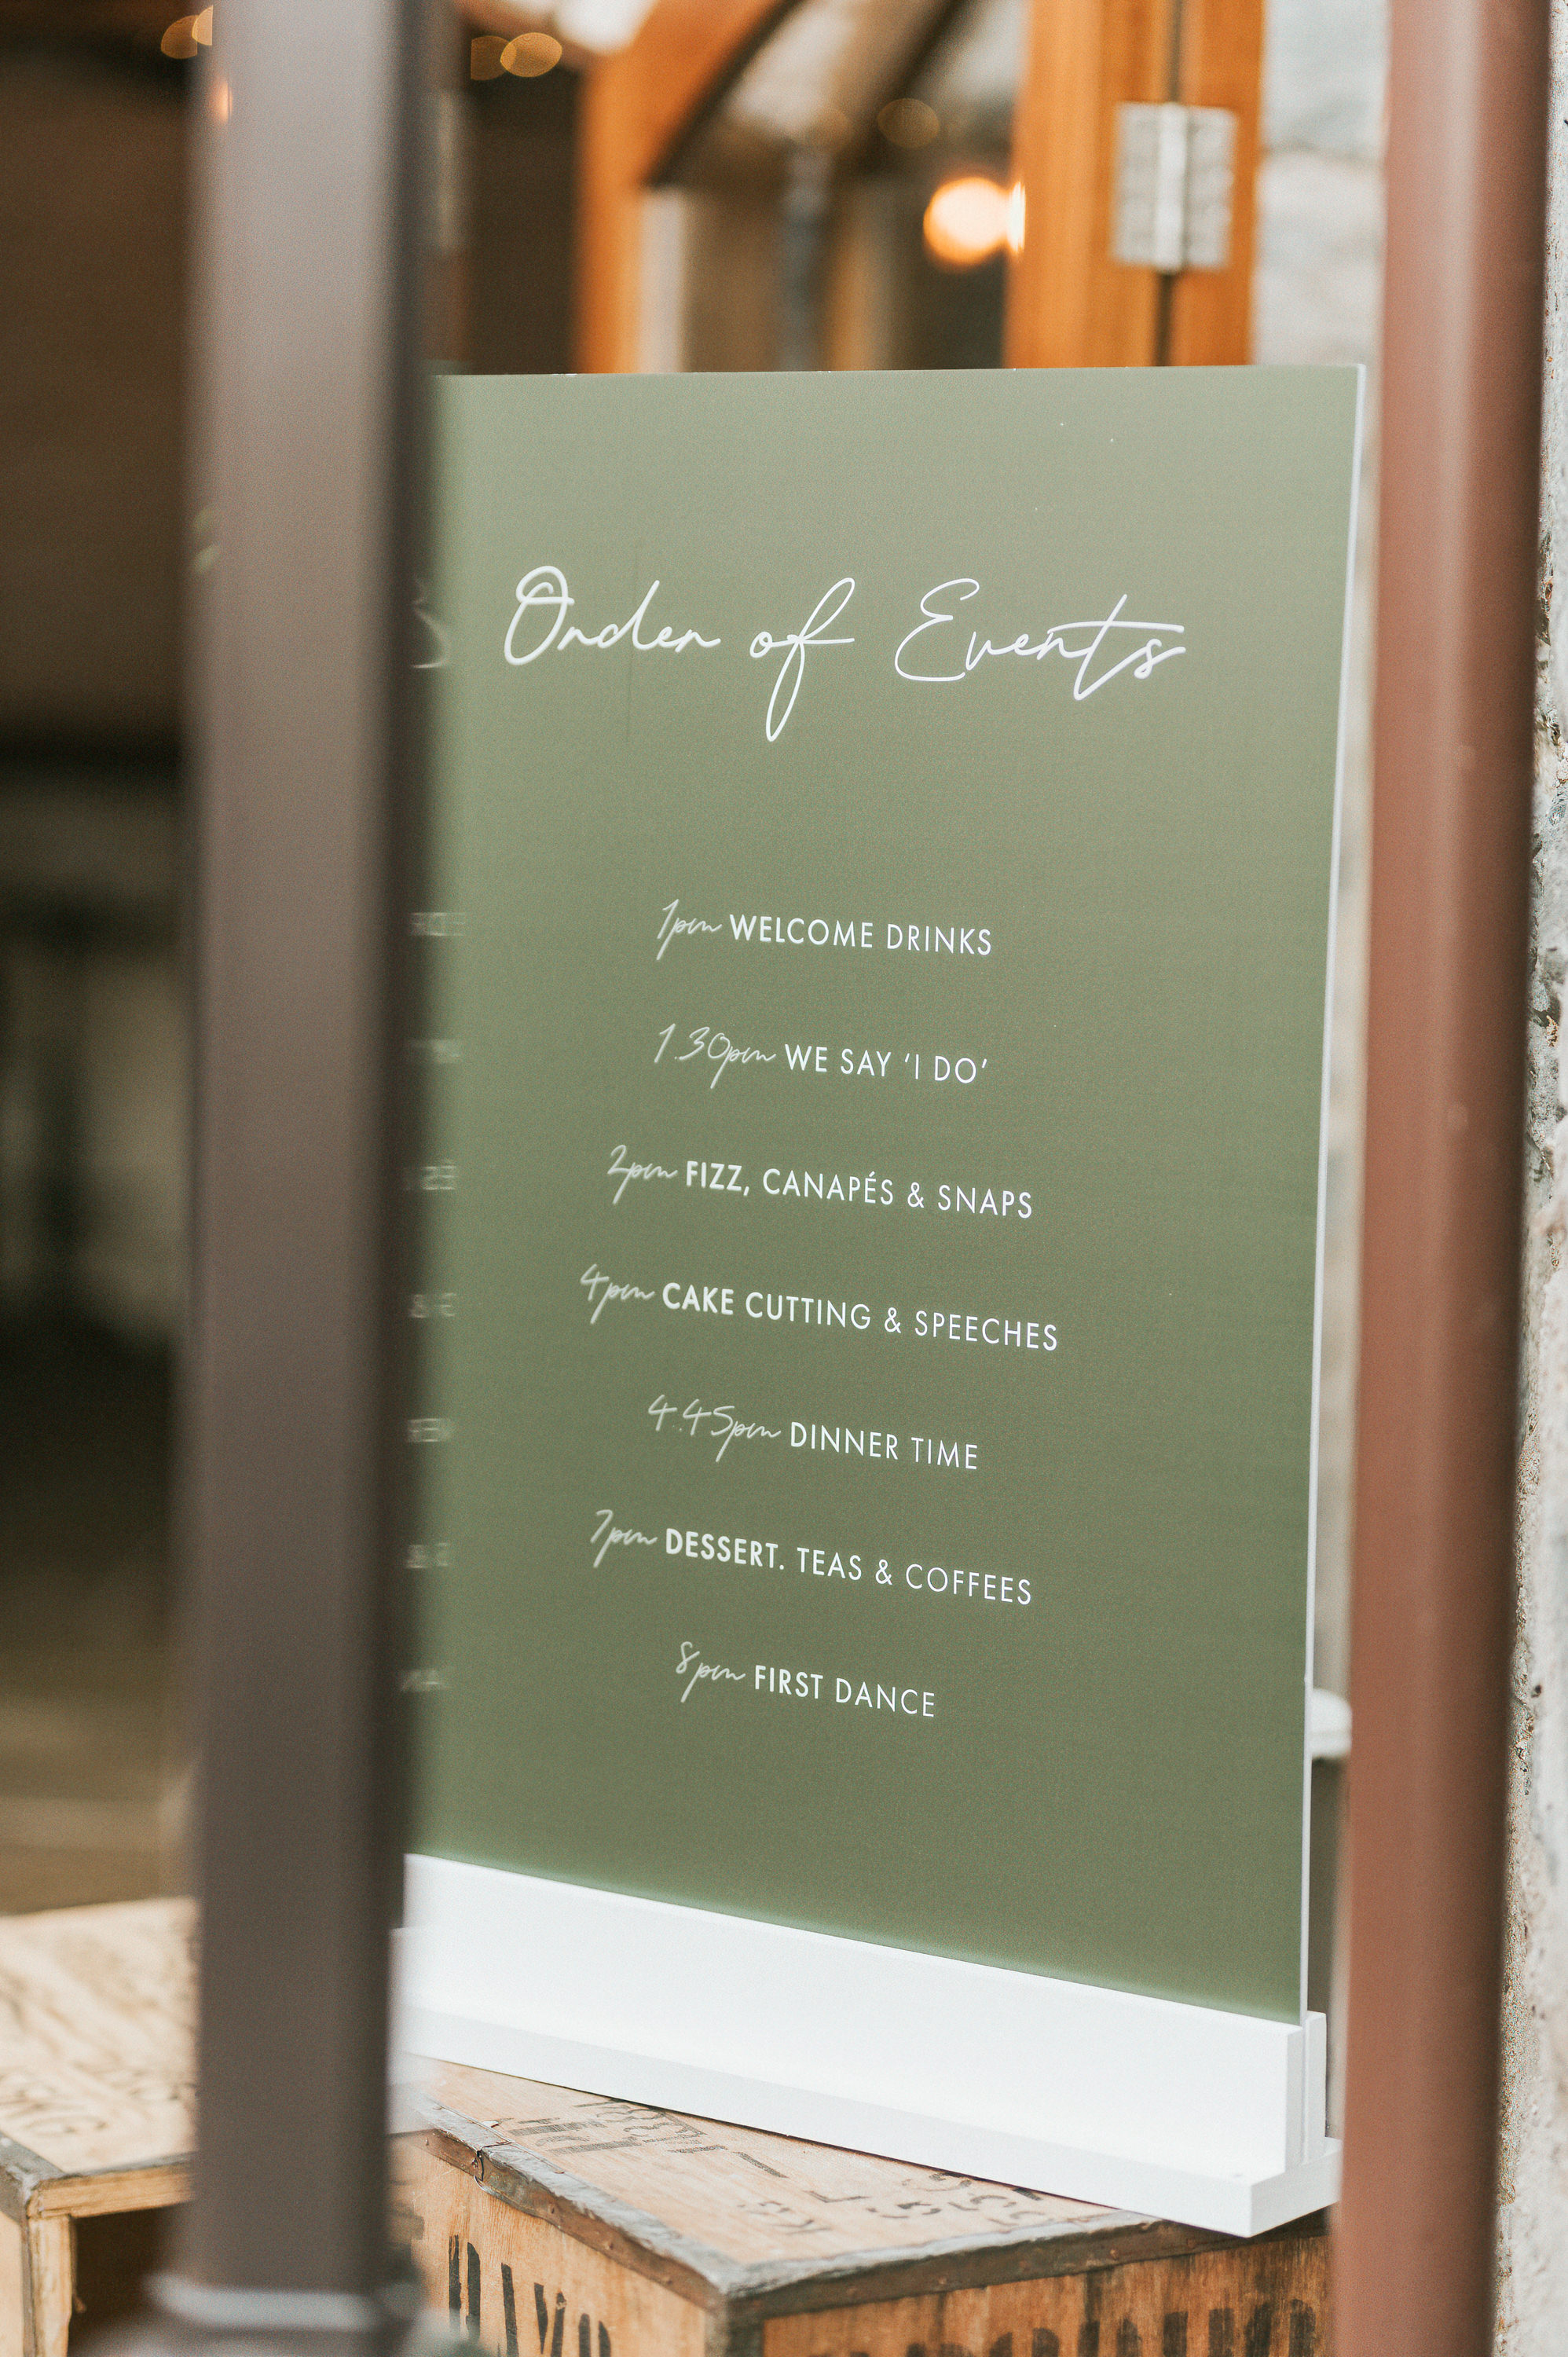 Order of Events
1pm WELCOME DRINKS
1.30pm WE SAY ‘I DO’
2pm FIZZ, CANAPÉS & SNAPS
4pm CAKE CUTTING & SPEECHES
4.45pm DINNER TIME
7pm DESSERT. TEAS & COFFEES
8pm FIRST DANCE